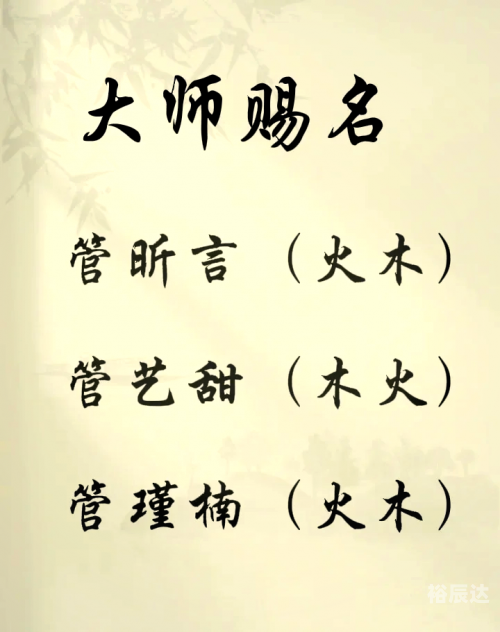 大师赐名
管昕言（火木）
管艺甜（木火）
管瑾楠（火木）
裕辰达